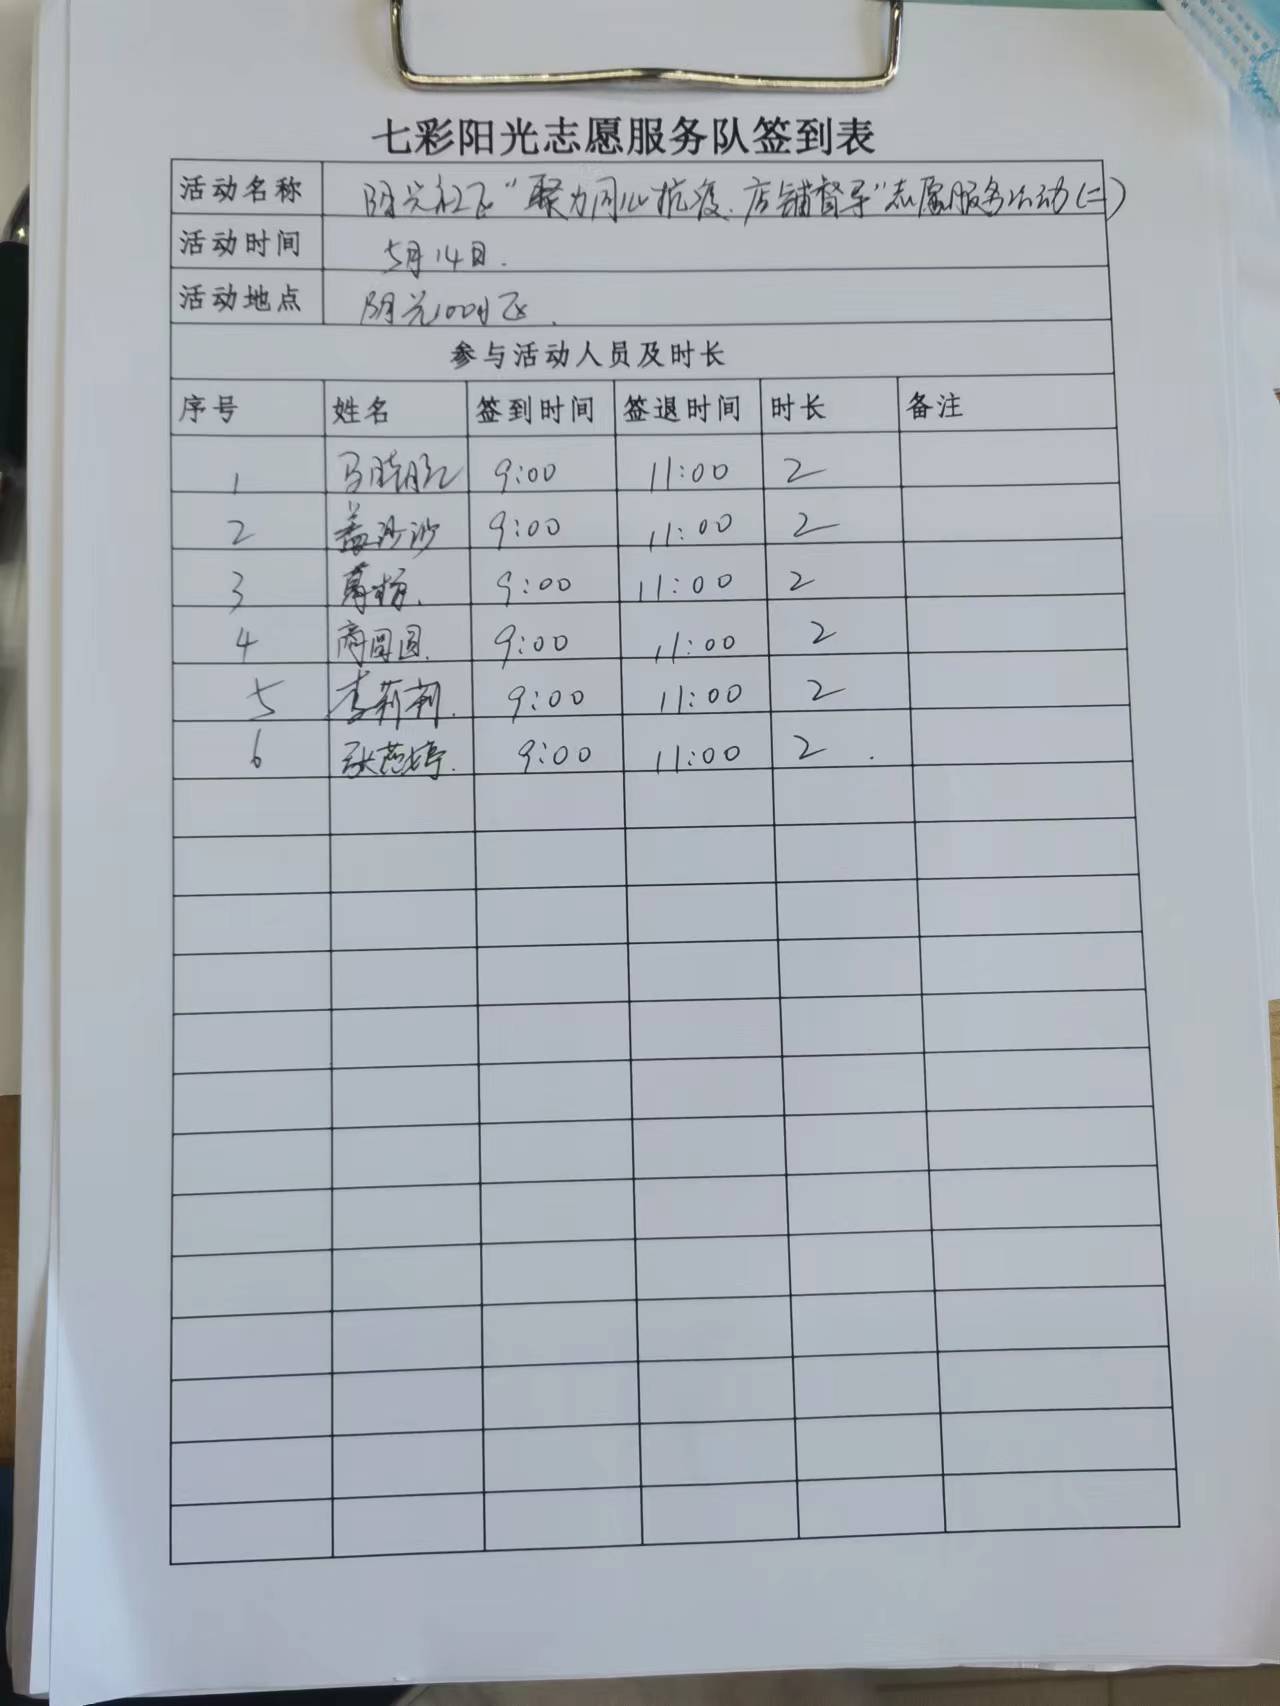 七彩阳光志愿服务队签到表
活动名称 阳光社区“聚力同心抗疫、店铺督导”志愿服务活动(二)
活动时间 5月14日.
活动地点 阳光100小区.
参与活动人员及时长
序号 姓名 签到时间 签退时间 时长 备注
1 马晓 9:00 11:00 2
2 盖沙沙 9:00 11:00 2
3 9:00 11:00 2
4 商圆圆. 9:00 11:00 2
5 李莉莉. 9:00 11:00 2
6 张燕婷. 9:00 11:00 2.